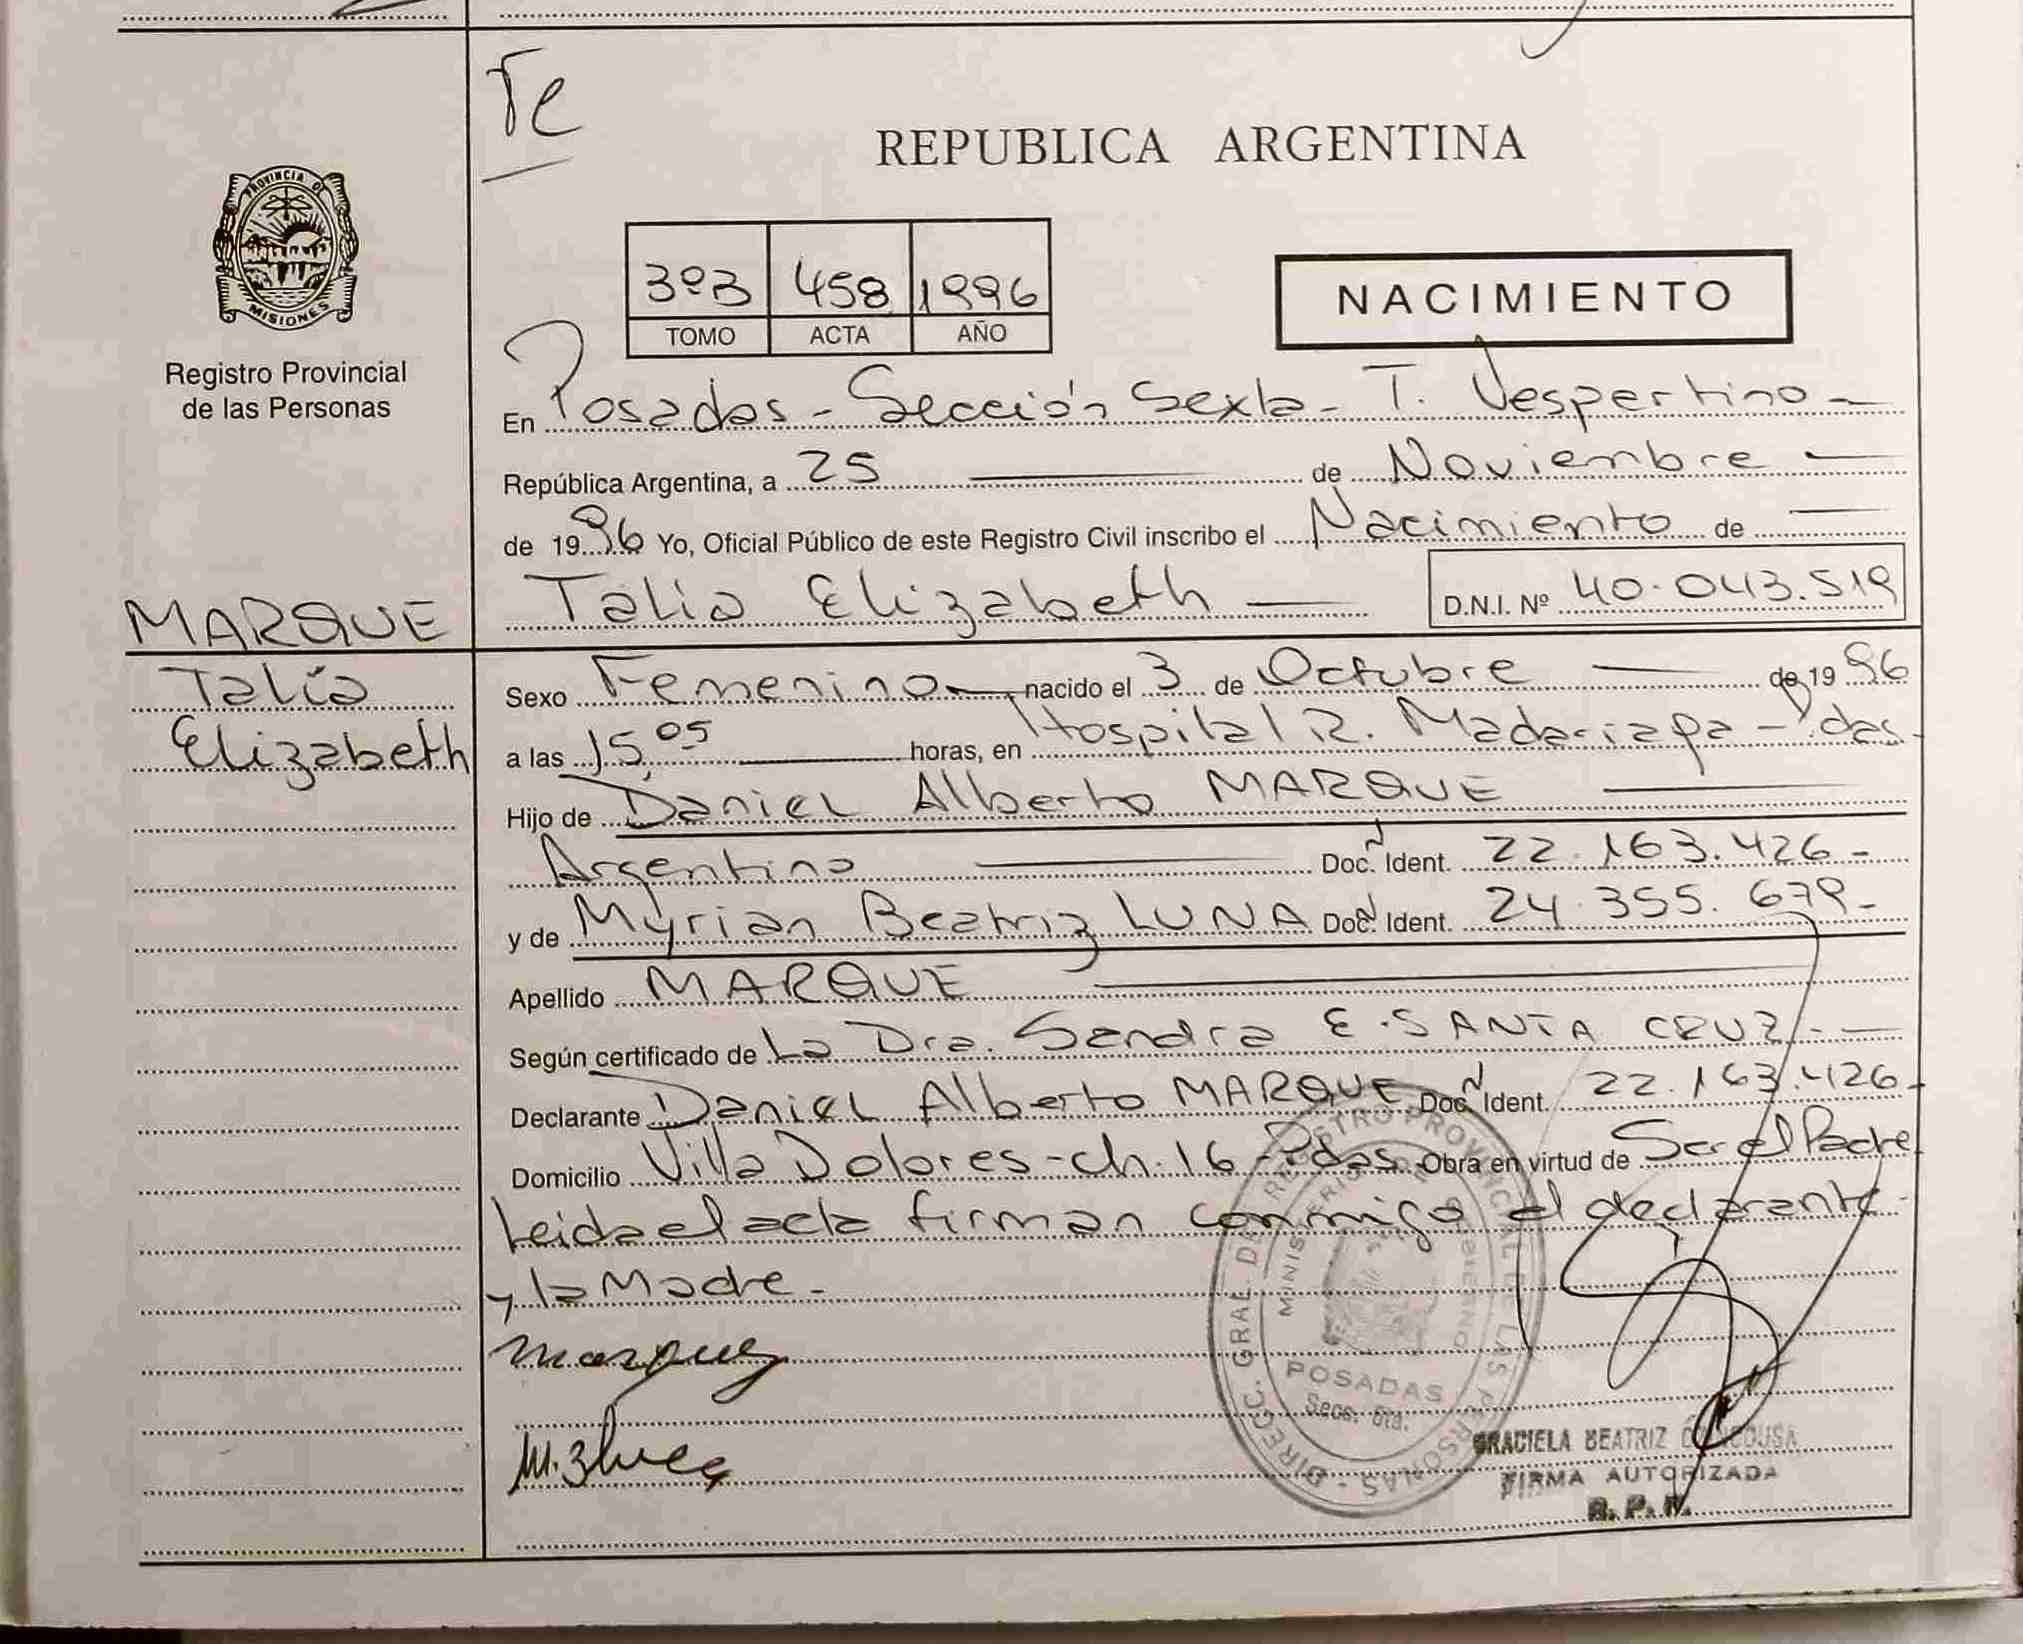 Te
REPUBLICA ARGENTINA
PROVINCIA DE
MISIONES
Registro Provincial
de las Personas
3ºB 458 1996
TOMO ACTA AÑO
NACIMIENTO
En Posadas - Sección Sexta - T. Vespertino -
República Argentina, a 25 de Noviembre
de 1996 Yo, Oficial Público de este Registro Civil inscribo el Nacimiento de
MARQUE
Talía
Elizabeth
Talía Elizabeth D.N.I. Nº 40.043.519
Sexo Femenino nacido el 3 de Octubre de 1996
a las 15,05 horas, en Hospital R. Madariaga - Pdas.
Hijo de Daniel Alberto MARQUE
Argentino Doc. Ident. 22.163.426 -
y de Myrian Beatriz LUNA Doc. Ident. 24.355.679 -
Apellido MARQUE
Según certificado de La Dra. Sandra E. SANTA CRUZ -
Declarante Daniel Alberto MARQUE Doc. Ident. 22.163.426 -
Domicilio Villa Dolores - ch. 16 - Pdas. Obra en virtud de Ser el Padre
Leida el acta firman conmigo el declarante
y la Madre -
DIRECC. GRAL. DEL REGISTRO PROVINCIAL DE LAS PERSONAS -
MINISTERIO DE GOBIERNO
POSADAS
Secc. 6ta.
GRACIELA BEATRIZ
FIRMA AUTORIZADA
R. P. P.